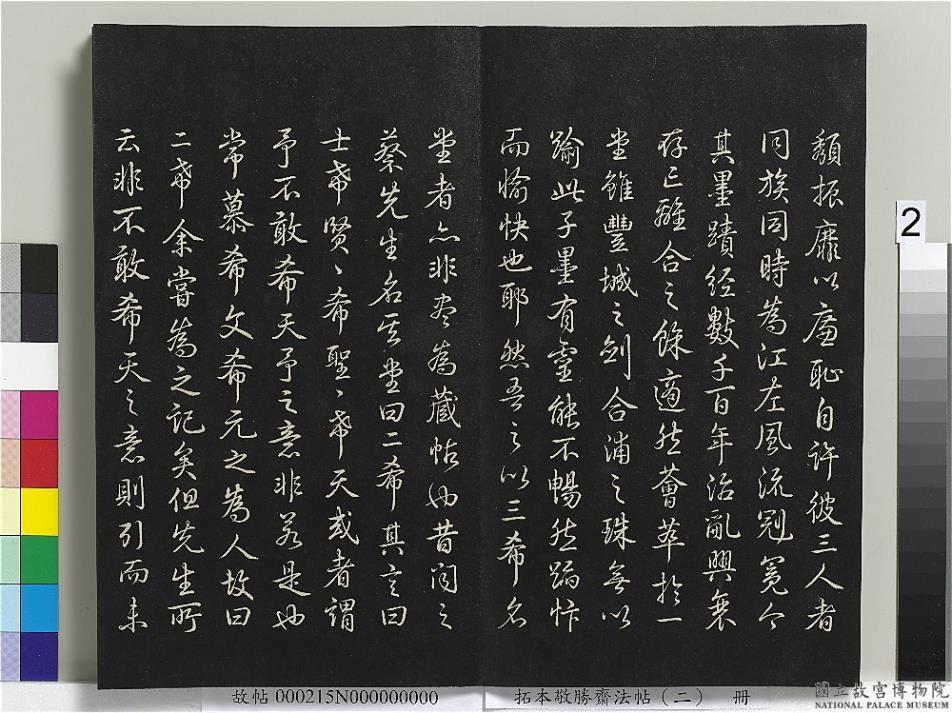 頹振靡以廉恥自許彼三人者
同族同時為江左風流冠冕今
其墨蹟經數千百年治亂興衰
存亡離合之餘適然薈萃於一
堂雖豐城之劍合浦之珠無以
踰此子墨有靈能不暢然蹈忭
而愉快也耶然吾之以三希名
堂者亦非盡為藏帖也昔聞之
蔡先生名其堂曰二希其言曰
士希賢〻希聖〻希天或者謂
予不敢希天予之意非若是也
常慕希文希元之為人故曰
二希余嘗為之記矣但先生所
云非不敢希天之意則引而未
2
故帖 000215N000000000
拓本敬勝齋法帖（二） 冊
國立故宮博物院
NATIONAL PALACE MUSEUM